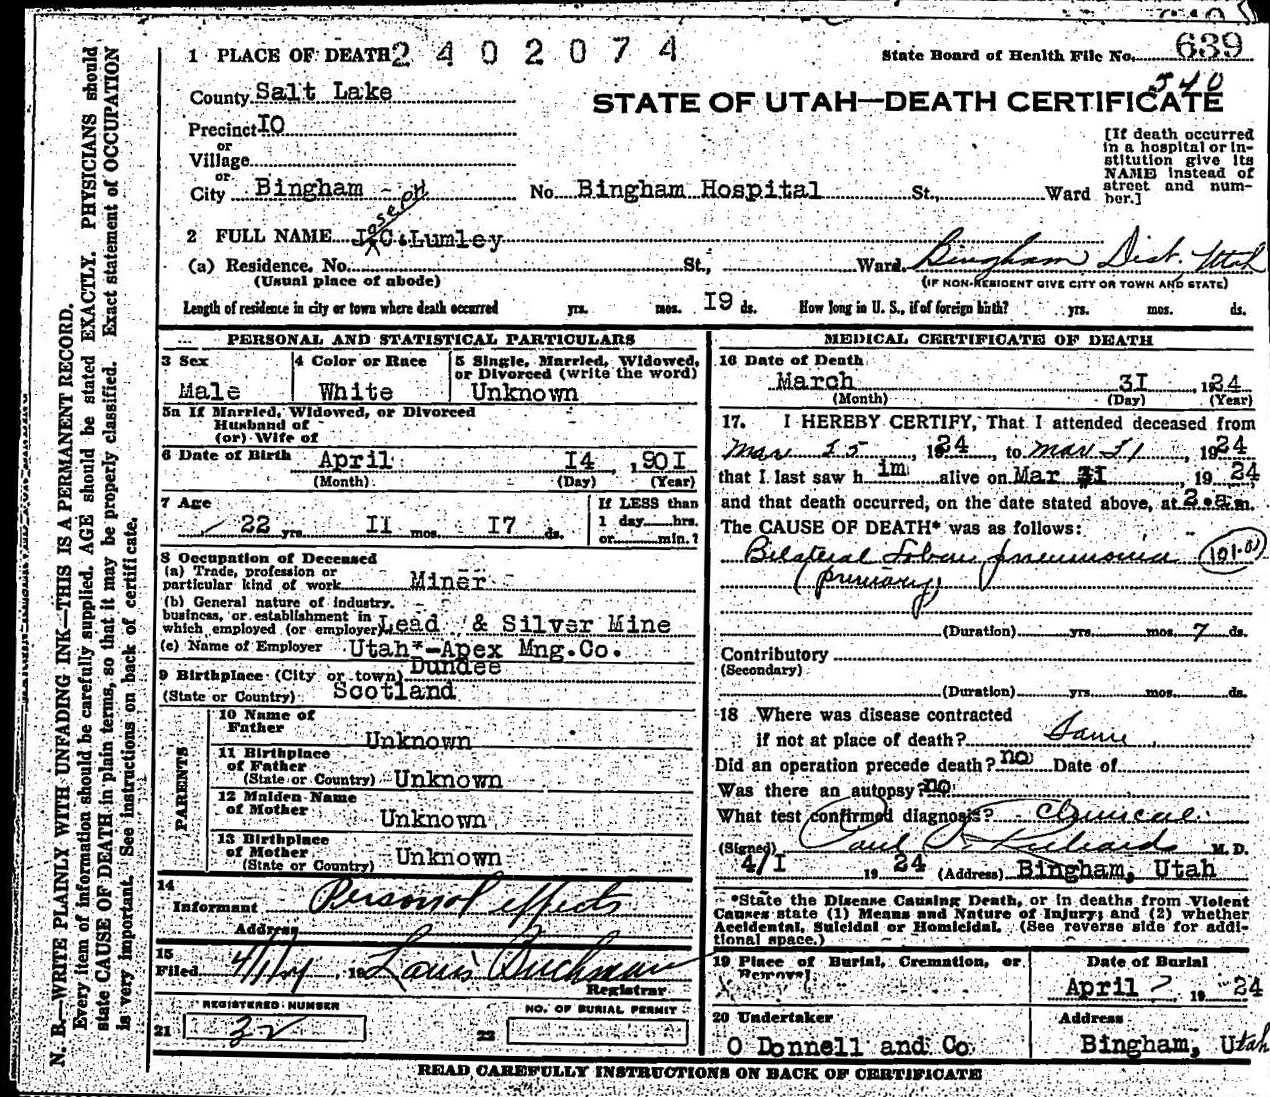 1 PLACE OF DEATH 2402074
State Board of Health File No. 639
540
County Salt Lake
STATE OF UTAH—DEATH CERTIFICATE
Precinct IO
or
Village
or
City Bingham - No. Bingham Hospital St., Ward
[If death occurred
in a hospital or in-
stitution give its
NAME instead of
street and num-
ber.]
Joseph
2 FULL NAME J. C. Lumley
(a) Residence. No. St., Ward. Bingham Dist. Utah
(Usual place of abode) (IF NON-RESIDENT GIVE CITY OR TOWN AND STATE)
Length of residence in city or town where death occurred yrs. mos. I9 ds. How long in U. S., if of foreign birth? yrs. mos. ds.
PERSONAL AND STATISTICAL PARTICULARS
3 Sex 4 Color or Race 5 Single, Married, Widowed,
or Divorced (write the word)
Male White Unknown
5a If Married, Widowed, or Divorced
Husband of
(or) Wife of
6 Date of Birth April I4 , 90I
(Month) (Day) (Year)
7 Age If LESS than
22 yrs. II mos. I7 ds. 1 day hrs.
or min.?
8 Occupation of Deceased
(a) Trade, profession or
particular kind of work Miner
(b) General nature of industry,
business, or establishment in
which employed (or employer) Lead & Silver Mine
(c) Name of Employer Utah*-Apex Mng.Co.
9 Birthplace (City or town) Dundee
(State or Country) Scotland
PARENTS
10 Name of
Father Unknown
11 Birthplace
of Father
(State or Country) Unknown
12 Maiden Name
of Mother Unknown
13 Birthplace
of Mother
(State or Country) Unknown
14
Informant Personal effects
Address
15
Filed 4/1/24, 19 Louis Buchman
Registrar
REGISTERED NUMBER NO. OF BURIAL PERMIT
21 32 22
MEDICAL CERTIFICATE OF DEATH
16 Date of Death
March 3I , 1924
(Month) (Day) (Year)
17. I HEREBY CERTIFY, That I attended deceased from
Mar 25, 1924, to Mar 31, 1924
that I last saw him alive on Mar 31, 1924
and that death occurred, on the date stated above, at 2.a.m.
The CAUSE OF DEATH* was as follows:
Bilateral Lobar pneumonia (101-0)
(primary)
(Duration) yrs. mos. 7 ds.
Contributory
(Secondary)
(Duration) yrs. mos. ds.
18 Where was disease contracted
if not at place of death? Same
Did an operation precede death? no Date of
Was there an autopsy? no
What test confirmed diagnosis? Clinical
(Signed) Paul S. Richards M. D.
4/I 1924 (Address) Bingham, Utah
*State the Disease Causing Death, or in deaths from Violent
Causes state (1) Means and Nature of Injury; and (2) whether
Accidental, Suicidal or Homicidal. (See reverse side for addi-
tional space.)
19 Place of Burial, Cremation, or
Removal Date of Burial
X April ? 19 24
20 Undertaker Address
O Donnell and Co Bingham, Utah
READ CAREFULLY INSTRUCTIONS ON BACK OF CERTIFICATE
N. B.—WRITE PLAINLY WITH UNFADING INK—THIS IS A PERMANENT RECORD.
Every item of information should be carefully supplied. AGE should be stated EXACTLY. PHYSICIANS should
state CAUSE OF DEATH in plain terms, so that it may be properly classified. Exact statement of OCCUPATION
is very important. See instructions on back of certificate.